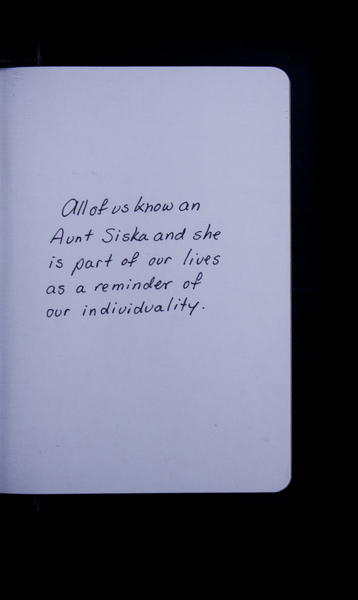 All of us know an
Aunt Siska and she
is part of our lives
as a reminder of
our individuality.